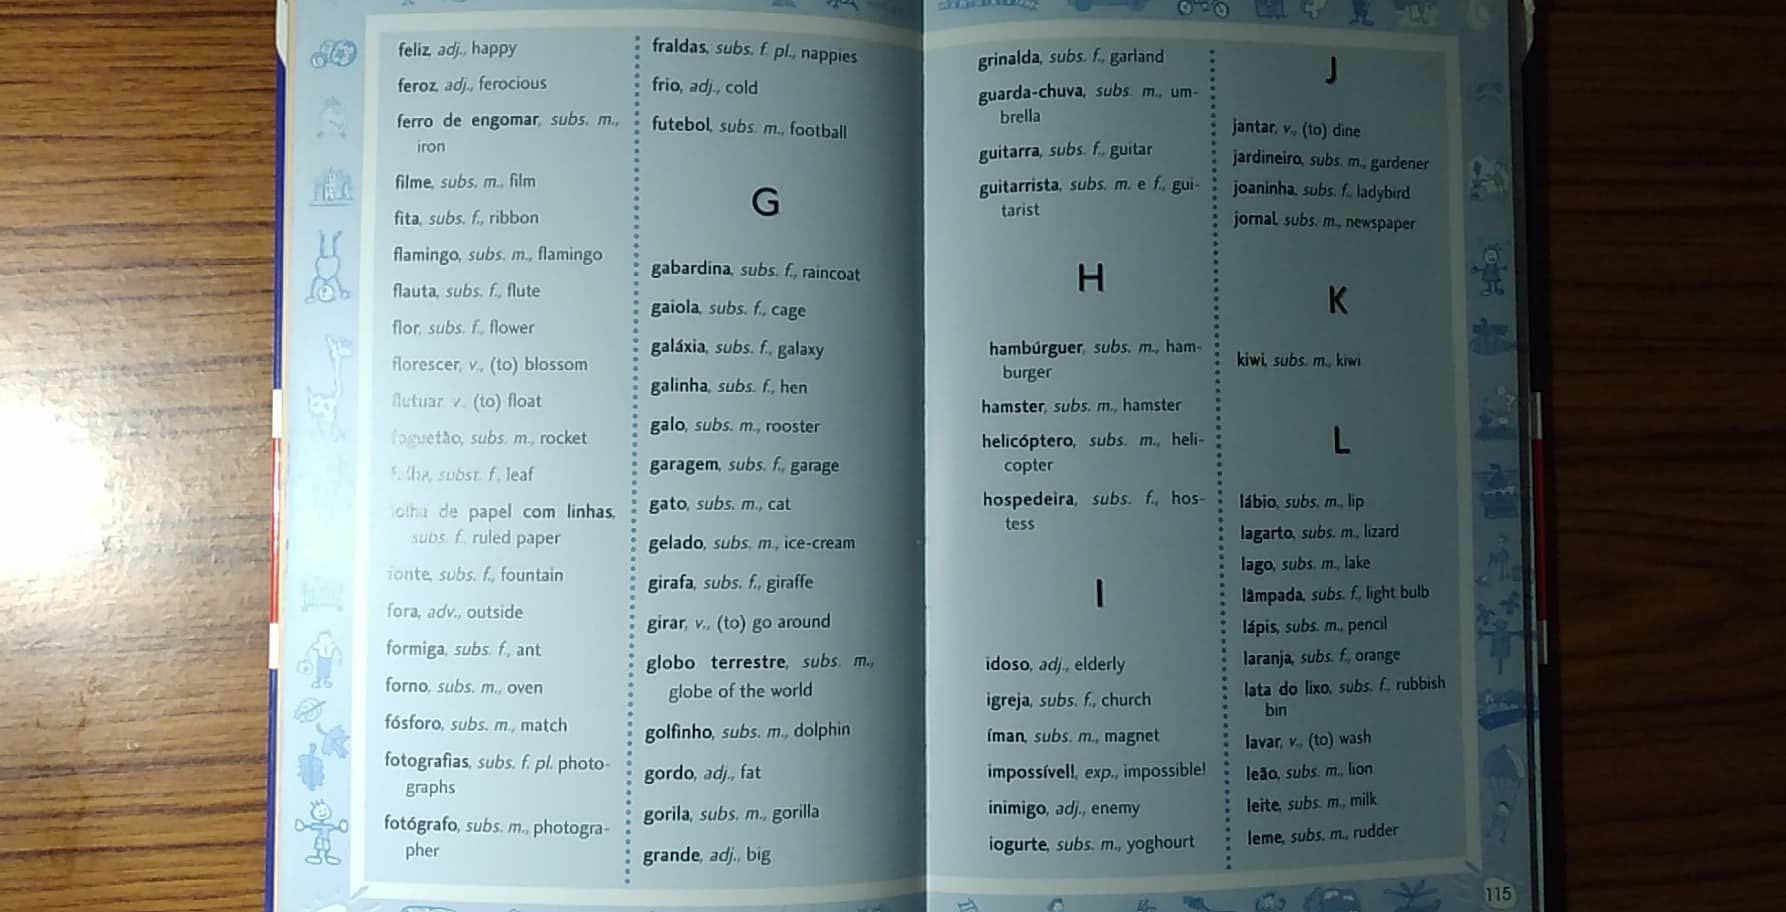 feliz, adj., happy
feroz, adj., ferocious
ferro de engomar, subs. m.,
iron
filme, subs. m., film
fita, subs. f., ribbon
flamingo, subs. m., flamingo
flauta, subs. f., flute
flor, subs. f., flower
florescer, v., (to) blossom
flutuar, v., (to) float
foguetão, subs. m., rocket
folha, subst. f., leaf
folha de papel com linhas,
subs. f., ruled paper
fonte, subs. f., fountain
fora, adv., outside
formiga, subs. f., ant
forno, subs. m., oven
fósforo, subs. m., match
fotografias, subs. f. pl. photo-
graphs
fotógrafo, subs. m., photogra-
pher
fraldas, subs. f. pl., nappies
frio, adj., cold
futebol, subs. m., football
G
gabardina, subs. f., raincoat
gaiola, subs. f., cage
galáxia, subs. f., galaxy
galinha, subs. f., hen
galo, subs. m., rooster
garagem, subs. f., garage
gato, subs. m., cat
gelado, subs. m., ice-cream
girafa, subs. f., giraffe
girar, v., (to) go around
globo terrestre, subs. m.,
globe of the world
golfinho, subs. m., dolphin
gordo, adj., fat
gorila, subs. m., gorilla
grande, adj., big
grinalda, subs. f., garland
guarda-chuva, subs. m., um-
brella
guitarra, subs. f., guitar
guitarrista, subs. m. e f., gui-
tarist
H
hambúrguer, subs. m., ham-
burger
hamster, subs. m., hamster
helicóptero, subs. m., heli-
copter
hospedeira, subs. f., hos-
tess
I
idoso, adj., elderly
igreja, subs. f., church
íman, subs. m., magnet
impossível!, exp., impossible!
inimigo, adj., enemy
iogurte, subs. m., yoghourt
J
jantar, v., (to) dine
jardineiro, subs. m., gardener
joaninha, subs. f., ladybird
jornal, subs. m., newspaper
K
kiwi, subs. m., kiwi
L
lábio, subs. m., lip
lagarto, subs. m., lizard
lago, subs. m., lake
lâmpada, subs. f., light bulb
lápis, subs. m., pencil
laranja, subs. f., orange
lata do lixo, subs. f., rubbish
bin
lavar, v., (to) wash
leão, subs. m., lion
leite, subs. m., milk
leme, subs. m., rudder
115